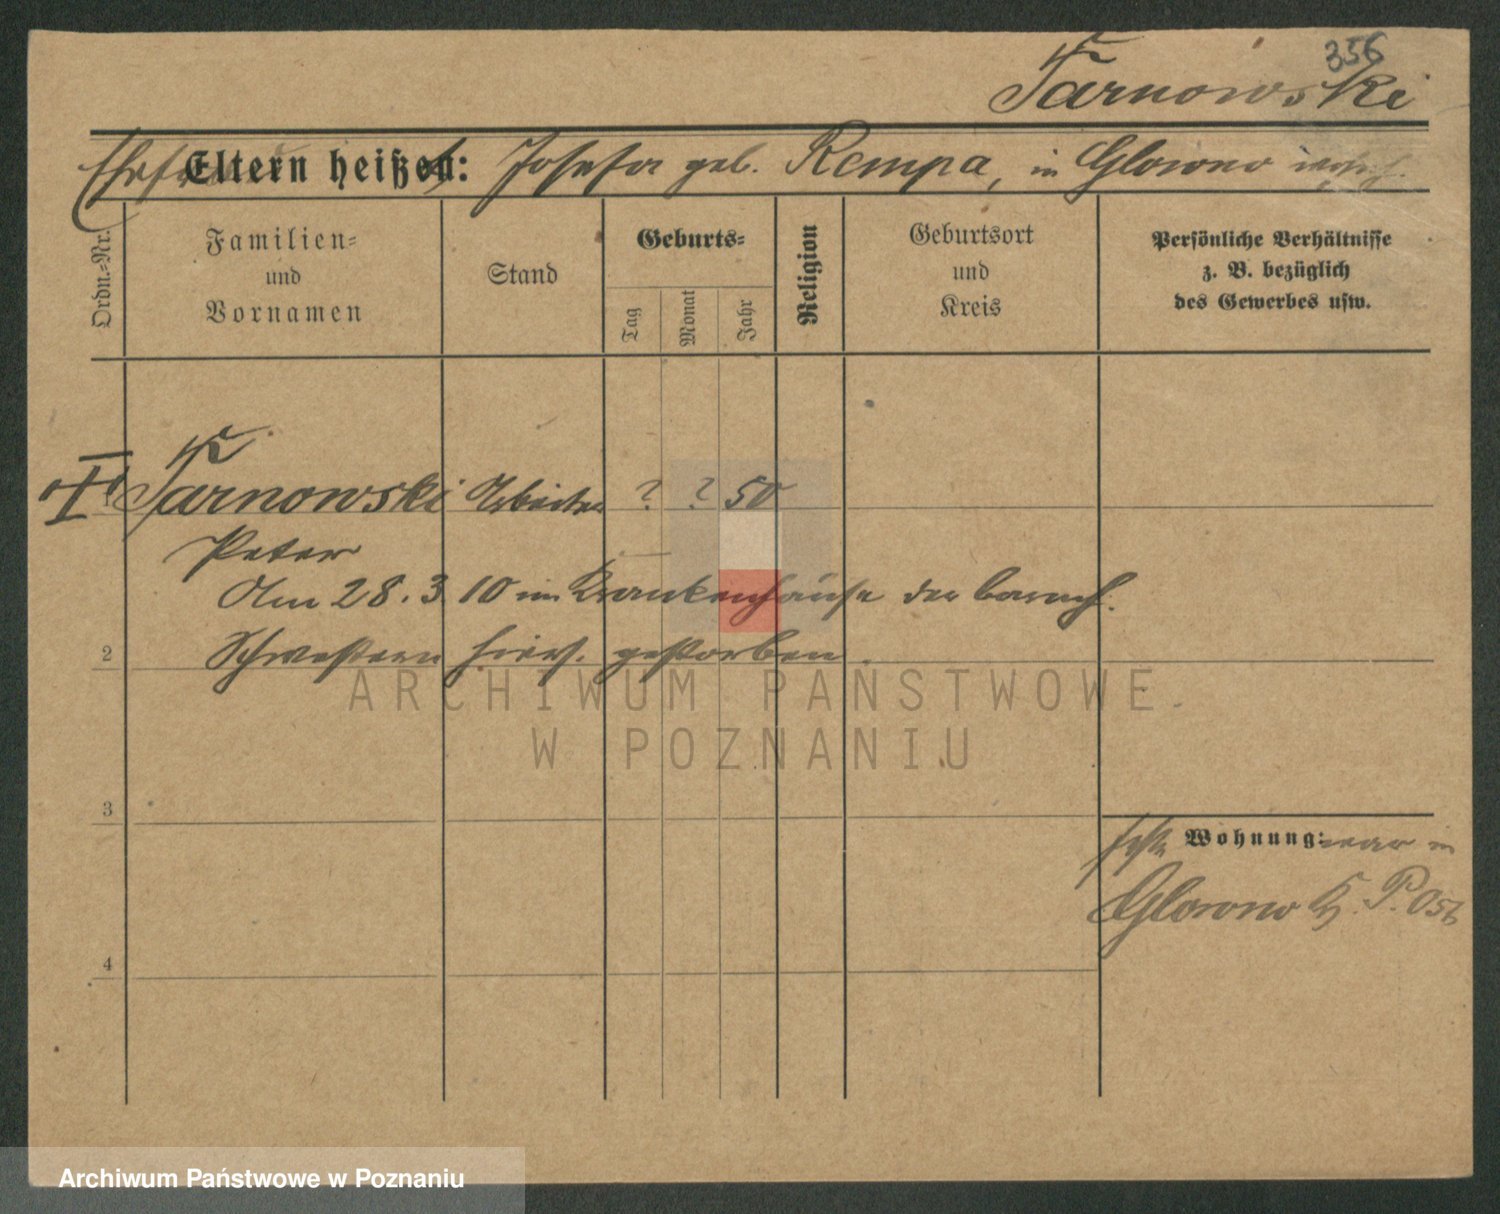 356
Tarnowski
Ehefrau Eltern heißen: Josefa geb. Rempa, in Glowno wohnh.
Ordn.-Nr.
Familien-
und
Vornamen
Stand
Geburts-
Tag
Monat
Jahr
Religion
Geburtsort
und
Kreis
Persönliche Verhältnisse
z. B. bezüglich
des Gewerbes usw.
1 Tarnowski Arbeiter ? ? 50
Peter
Am 28. 3. 10 im Krankenhause der barmh.
2 Schwestern hiers. gestorben.
ARCHIWUM PAŃSTWOWE
W POZNANIU
3
Wohnung: war in
Glowno K. P. Ost
4
Archiwum Państwowe w Poznaniu